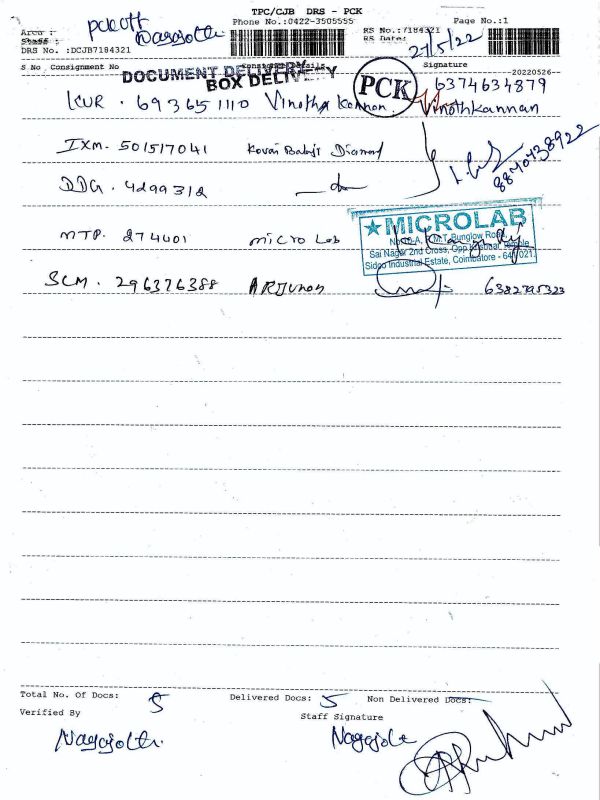 TPC/CJB DRS - PCK
Phone No.:0422-3505555
Page No.:1
Area : PCK off
Staff : Nagajothi
RS No.:7184321
RS Date: 27/5/22
DRS No. :DCJB7184321
S No Consignment No Consignee Details Signature
20220526
DOCUMENT DELIVERY
BOX DELIVERY
PCK
6374634879
KUR . 693651110 Vinoth Kannan. Vinothkannan
IXM. 501517041 Kovai Balaji Diamond
8870738922
DDG . 4299312
MTP. 274401 micro Lab
★MICROLAB
Sai Nagar 2nd Cross, Opp
Sidco Industrial Estate, Coimbatore - 641 021.
SCM. 296376388 ARJunon 6382795323
Total No. Of Docs: 5 Delivered Docs: 5 Non Delivered Docs:
Verified By Staff Signature
Nagajothi Nagajothi